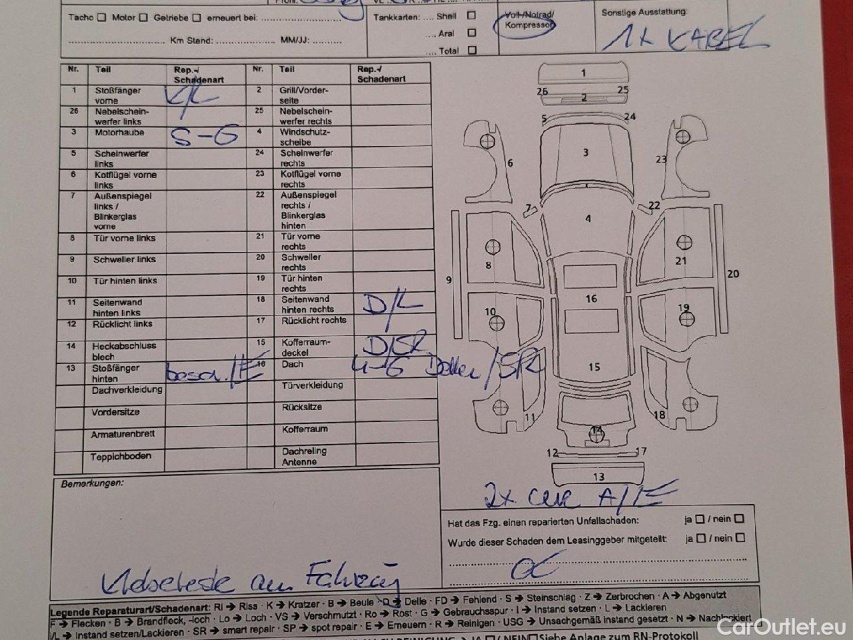 Tacho ☐ Motor ☐ Getriebe ☐ erneuert bei:
Km Stand: MM/JJ:
Tankkarten: Shell ☐
Aral ☐
Total ☐
Voll-/Notrad/
Kompressor
Sonstige Ausstattung:
1x KABEL
Nr. Teil Rep.-/Schadenart Nr. Teil Rep.-/Schadenart
1 Stoßfänger vorne K/L 2 Grill/Vorderseite
26 Nebelscheinwerfer links 25 Nebelscheinwerfer rechts
3 Motorhaube S-G 4 Windschutzscheibe
5 Scheinwerfer links 24 Scheinwerfer rechts
6 Kotflügel vorne links 23 Kotflügel vorne rechts
7 Außenspiegel links / Blinkerglas vorne 22 Außenspiegel rechts / Blinkerglas hinten
8 Tür vorne links 21 Tür vorne rechts
9 Schweller links 20 Schweller rechts
10 Tür hinten links 19 Tür hinten rechts
11 Seitenwand hinten links 18 Seitenwand hinten rechts D/L
12 Rücklicht links 17 Rücklicht rechts
14 Heckabschluss blech 15 Kofferraumdeckel D/SR
13 Stoßfänger hinten besch./E 16 Dach 4-6 Dellen/SR
Dachverkleidung Türverkleidung
Vordersitze Rücksitze
Armaturenbrett Kofferraum
Teppichboden Dachreling Antenne
1
26 25
2
5 24
3
6 23
7 22
4
8 21
9 20
10 19
16
15
11 18
14
12 17
13
2x A/E
Bemerkungen:
Hat das Fzg. einen reparierten Unfallschaden: ja ☐ / nein ☐
Wurde dieser Schaden dem Leasinggeber mitgeteilt: ja ☐ / nein ☐
Klebereste am Fahrzeug
Legende Reparaturart/Schadenart: RI → Riss · K → Kratzer · B → Beule · D → Delle · FD → Fehlend · S → Steinschlag · Z → Zerbrochen · A → Abgenutzt
F → Flecken · B → Brandfleck, -loch · Lo → Loch · VS → Verschmutzt · Ro → Rost · G → Gebrauchsspur · I → Instand setzen · L → Lackieren
I/L → Instand setzen/Lackieren · SR → smart repair · SP → spot repair · E → Erneuern · R → Reinigen · USG → Unsachgemäß Instand gesetzt · N → Nachlackiert
JA ☐ / NEIN ☐ Siehe Anlage zum RN-Protokoll
CarOutlet.eu